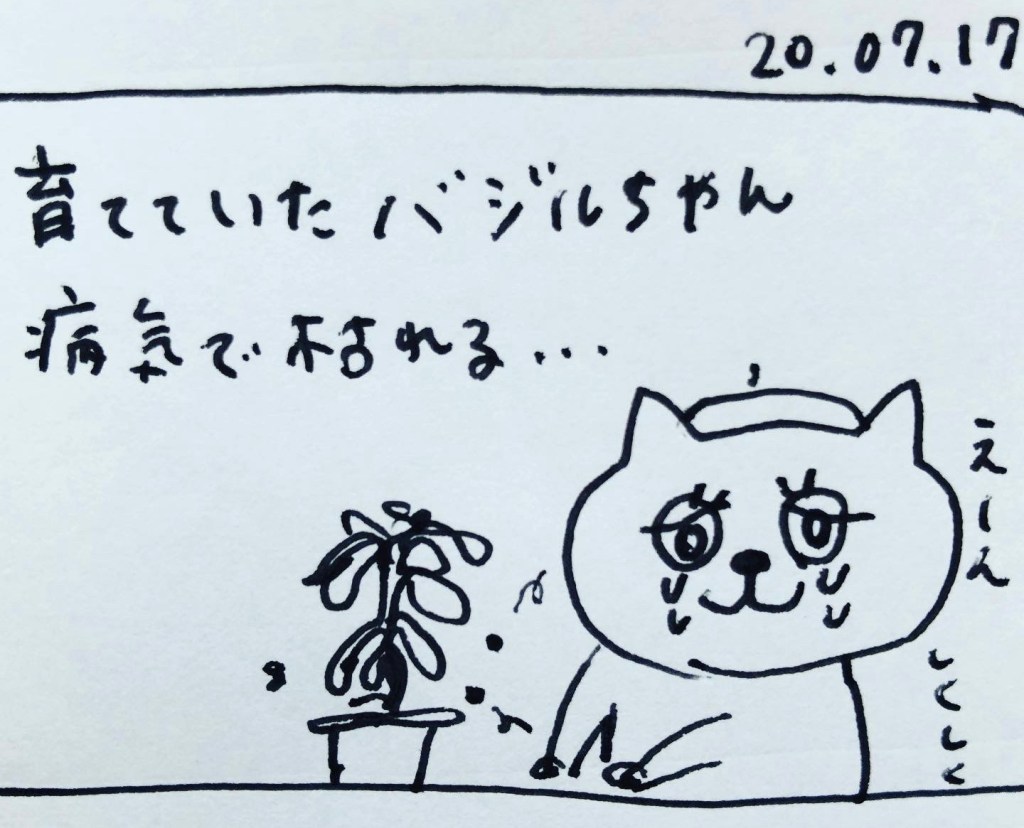 20.07.17
育てていたバジルちゃん
病気で枯れる...
えーん
しくしく